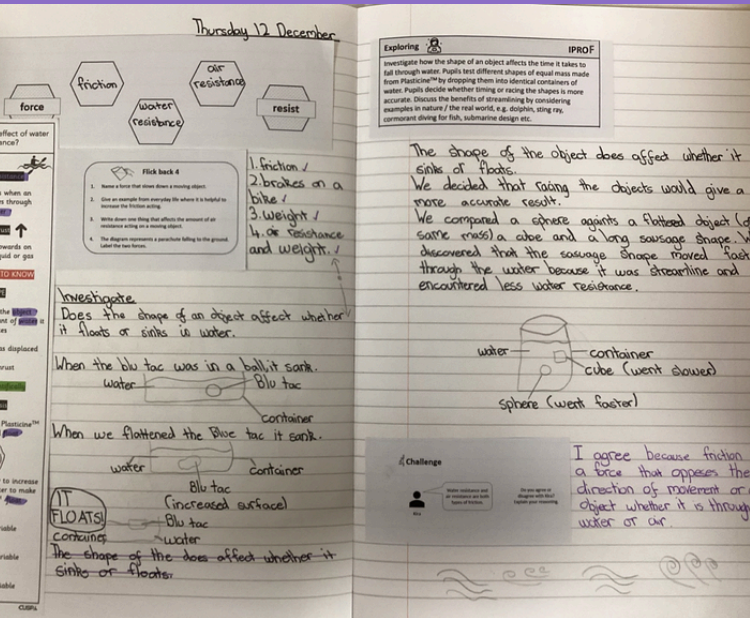 Thursday 12 December
friction
air
resistance
force
water
resistance
resist
effect of water
when an
s through
wards on
quid or gas
TO KNOW
the object
nt of water a
as displaced
rust
Plasticine™
to increase
ter to make
float
riable
riable
iable
CUSP
Flick back 4
1. Name a force that slows down a moving object.
2. Give an example from everyday life where it is helpful to
increase the friction acting.
3. Write down one thing that affects the amount of air
resistance acting on a moving object.
4. The diagram represents a parachute falling to the ground.
Label the two forces.
1. friction ✓
2. brakes on a
bike ✓
3. weight ✓
4. air resistance
and weight. ✓
Investigate
Does the shape of an object affect whether
it floats or sinks is water.
When the blu tac was in a ball it sank.
water
Blu tac
container
When we flattened the Blue tac it sank.
water
container
Blu tac
(increased surface)
IT
FLOATS!
Blu tac
container
water
The shape of the does affect whether it
sinks or floats.
Exploring
IPROF
Investigate how the shape of an object affects the time it takes to
fall through water. Pupils test different shapes of equal mass made
from Plasticine™ by dropping them into identical containers of
water. Pupils decide whether timing or racing the shapes is more
accurate. Discuss the benefits of streamlining by considering
examples in nature / the real world, e.g. dolphin, sting ray,
cormorant diving for fish, submarine design etc.
The shape of the object does affect whether it
sinks or floats.
We decided that racing the objects would give a
more accurate result.
We compared a sphere againts a flattered object (of
same mass) a cube and a long sausage shape. W
discovered that the sausage shape moved fast
through the water because it was streamline and
encountered less water resistance.
water
container
cube (went slower)
sphere (went faster)
Challenge
Water resistance and
air resistance are both
types of friction.
Do you agree or
disagree with
Explain your reasoning.
I agree because friction
a force that oppeses the
direction of movement or
object whether it is through
water or air.